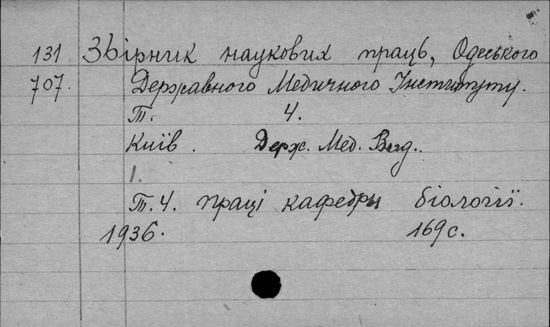 131 Збірник наукових праць, Одеського
707. Державного Медичного Інституту.
Т. 4.
Київ. Держ. Мед. Вид.
1.
Т. 4. праці кафедри біології.
1936. 169 с.